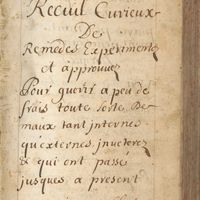 Recüil Curieux
De
Remedes Experimentez
et approuvez
Pour guerir a peu de
frais toute sorte De
maux tant internes
qu'externes jnueterez
& qui ont passe
jusques a present